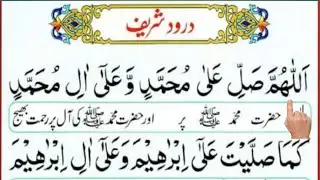 درود شریف
اَللّٰهُمَّ صَلِّ عَلٰى مُحَمَّدٍ وَّ عَلٰٓى اٰلِ مُحَمَّدٍ
حضرت محمد ﷺ پر اور حضرت محمد ﷺ کی آل پر رحمت بھیج
كَمَا صَلَّيْتَ عَلٰٓى اِبْرٰهِيْمَ وَعَلٰٓى اٰلِ اِبْرٰهِيْمَ